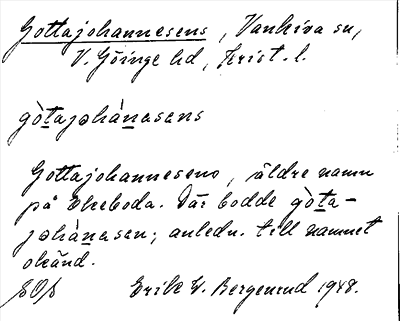 Gottajohannesens, Vankiva sn,
V. Göinge hd, Krist. l.
gòt̲ajohàn̲əsəns
Gottajohannesens, äldre namn
på Ekeboda. Där bodde gòt̲a-
johàn̲əsən; anledn. till namnet
okänd.
Erik W. Bergenrud 1948.